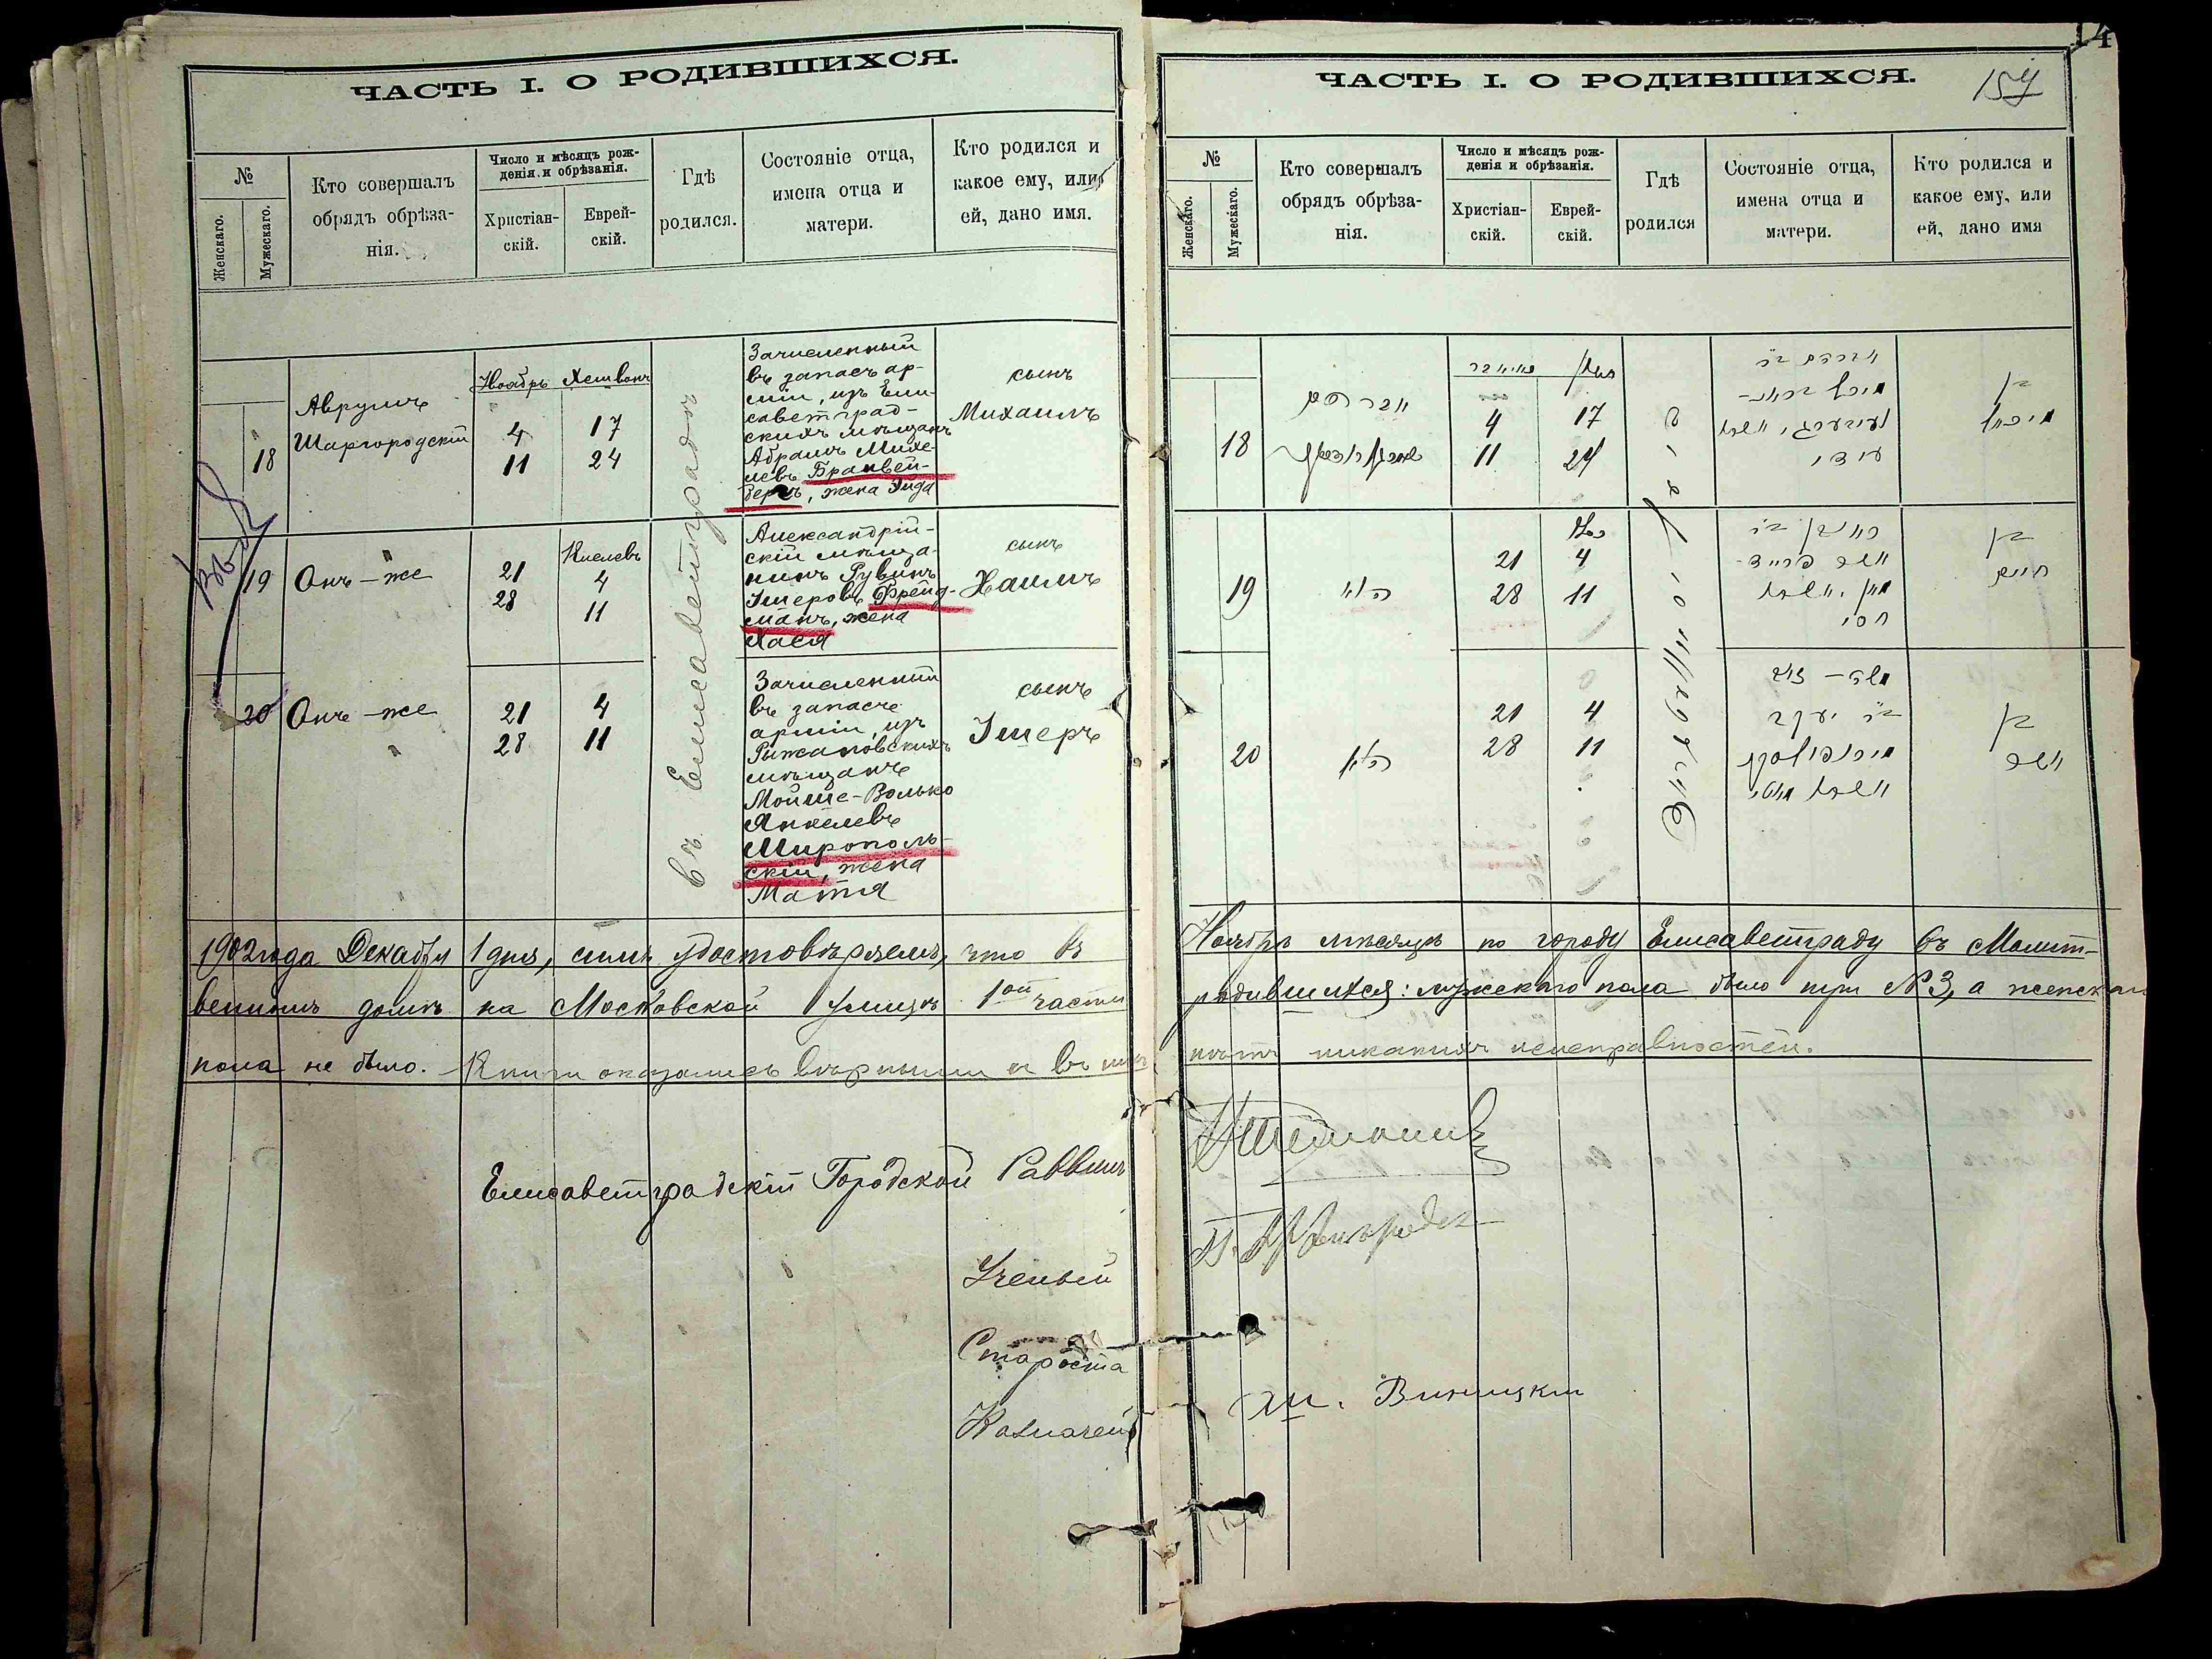 ЧАСТЬ I. О РОДИВШИХСЯ.
№
Женскаго.
Мужескаго.
Кто совершалъ
обрядъ обрѣза-
нія.
Число и мѣсяцъ рож-
денія и обрѣзанія.
Христіан-
скій.
Еврей-
скій.
Гдѣ
родился.
Состояніе отца,
имена отца и
матери.
Кто родился и
какое ему, или
ей, дано имя.
18
Аврумъ
Шаргородскій
Ноябрь Хешванъ
4 17
11 24
въ Елисаветградѣ
Зачисленный
въ запасъ ар-
міи, изъ Ели-
саветград-
скихъ мѣщанъ
Абрамъ Михе-
левъ Бранвей-
бергъ, жена Эйда
сынъ
Михаилъ
19
Онъ-же
Кислевъ
21 4
28 11
Александрій-
скій мѣща-
нинъ Рувинъ
Ушеровъ Фрейд-
манъ, жена
Хася
сынъ
Хаимъ
20
Онъ-же
21 4
28 11
Зачисленный
въ запасъ
арміи, изъ
Рыжановскихъ
мѣщанъ
Мойше-Волько
Янкелевъ
Мирополь-
скій, жена
Матля
сынъ
Ушеръ
1902 года Декабря 1 дня, симъ удостовѣряемъ, что въ
венномъ домѣ на Московской улицѣ 1ой части
пола не было. Книги оказались вѣрными и въ нихъ
Елисаветградскій Городской Раввинъ
Ученый
Староста
Казначей
14
157
ЧАСТЬ I. О РОДИВШИХСЯ.
№
Женскаго.
Мужескаго.
Кто совершалъ
обрядъ обрѣза-
нія.
Число и мѣсяцъ рож-
денія и обрѣзанія.
Христіан-
скій.
Еврей-
скій.
Гдѣ
родился
Состояніе отца,
имена отца и
матери.
Кто родился и
какое ему, или
ей, дано имя
18
אברהם
4 17
11 24
אברהם ב״ר
בן
מיכאל
19
הנ״ל
21 4
28 11
ראובן ב״ר
אשר פרייד-
מאן, אשתו
חסי
בן
חיים
20
הנ״ל
21 4
28 11
משה-
ב״ר יעקב
בן
אשר
Ноябрѣ мѣсяцѣ по городу Елисаветграду въ Молит-
родившихся: мужскаго пола было три № 3, а женскаго
нѣтъ никакихъ неисправностей.
Виницкій